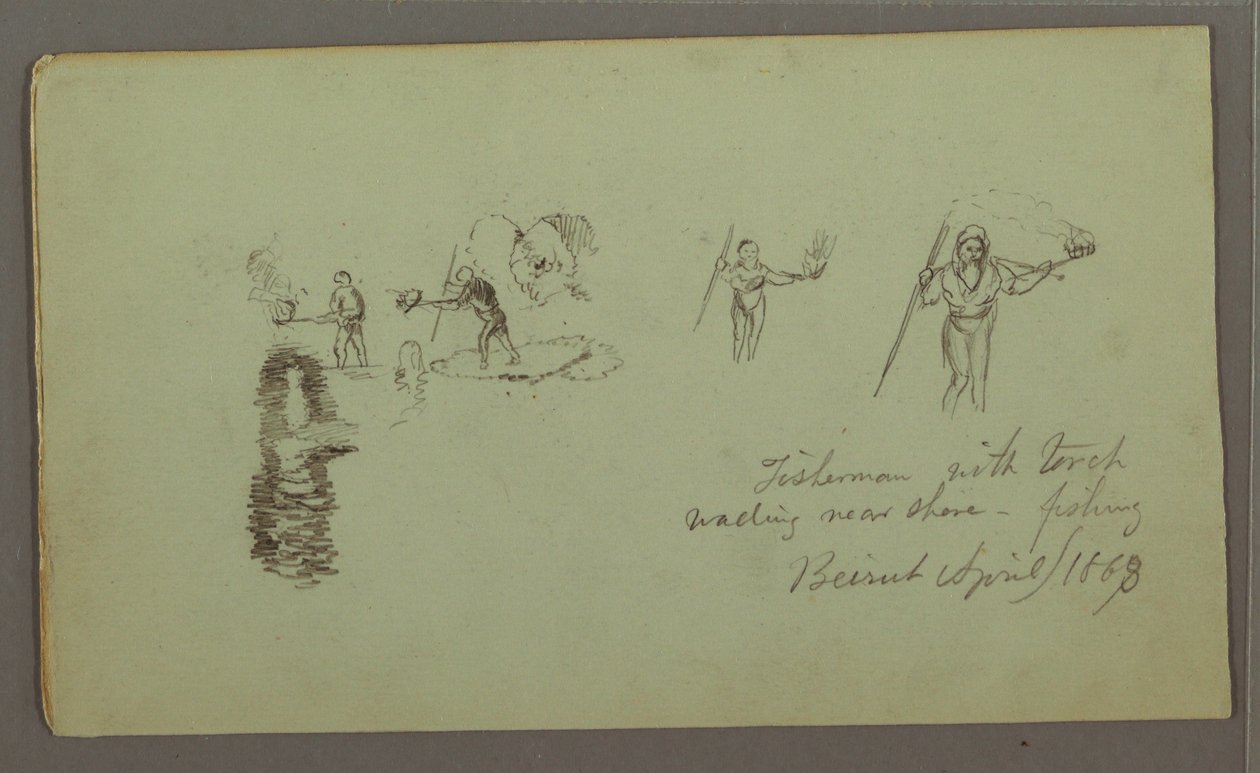 Fisherman with torch
wading near shore - fishing
Beirut April/1868